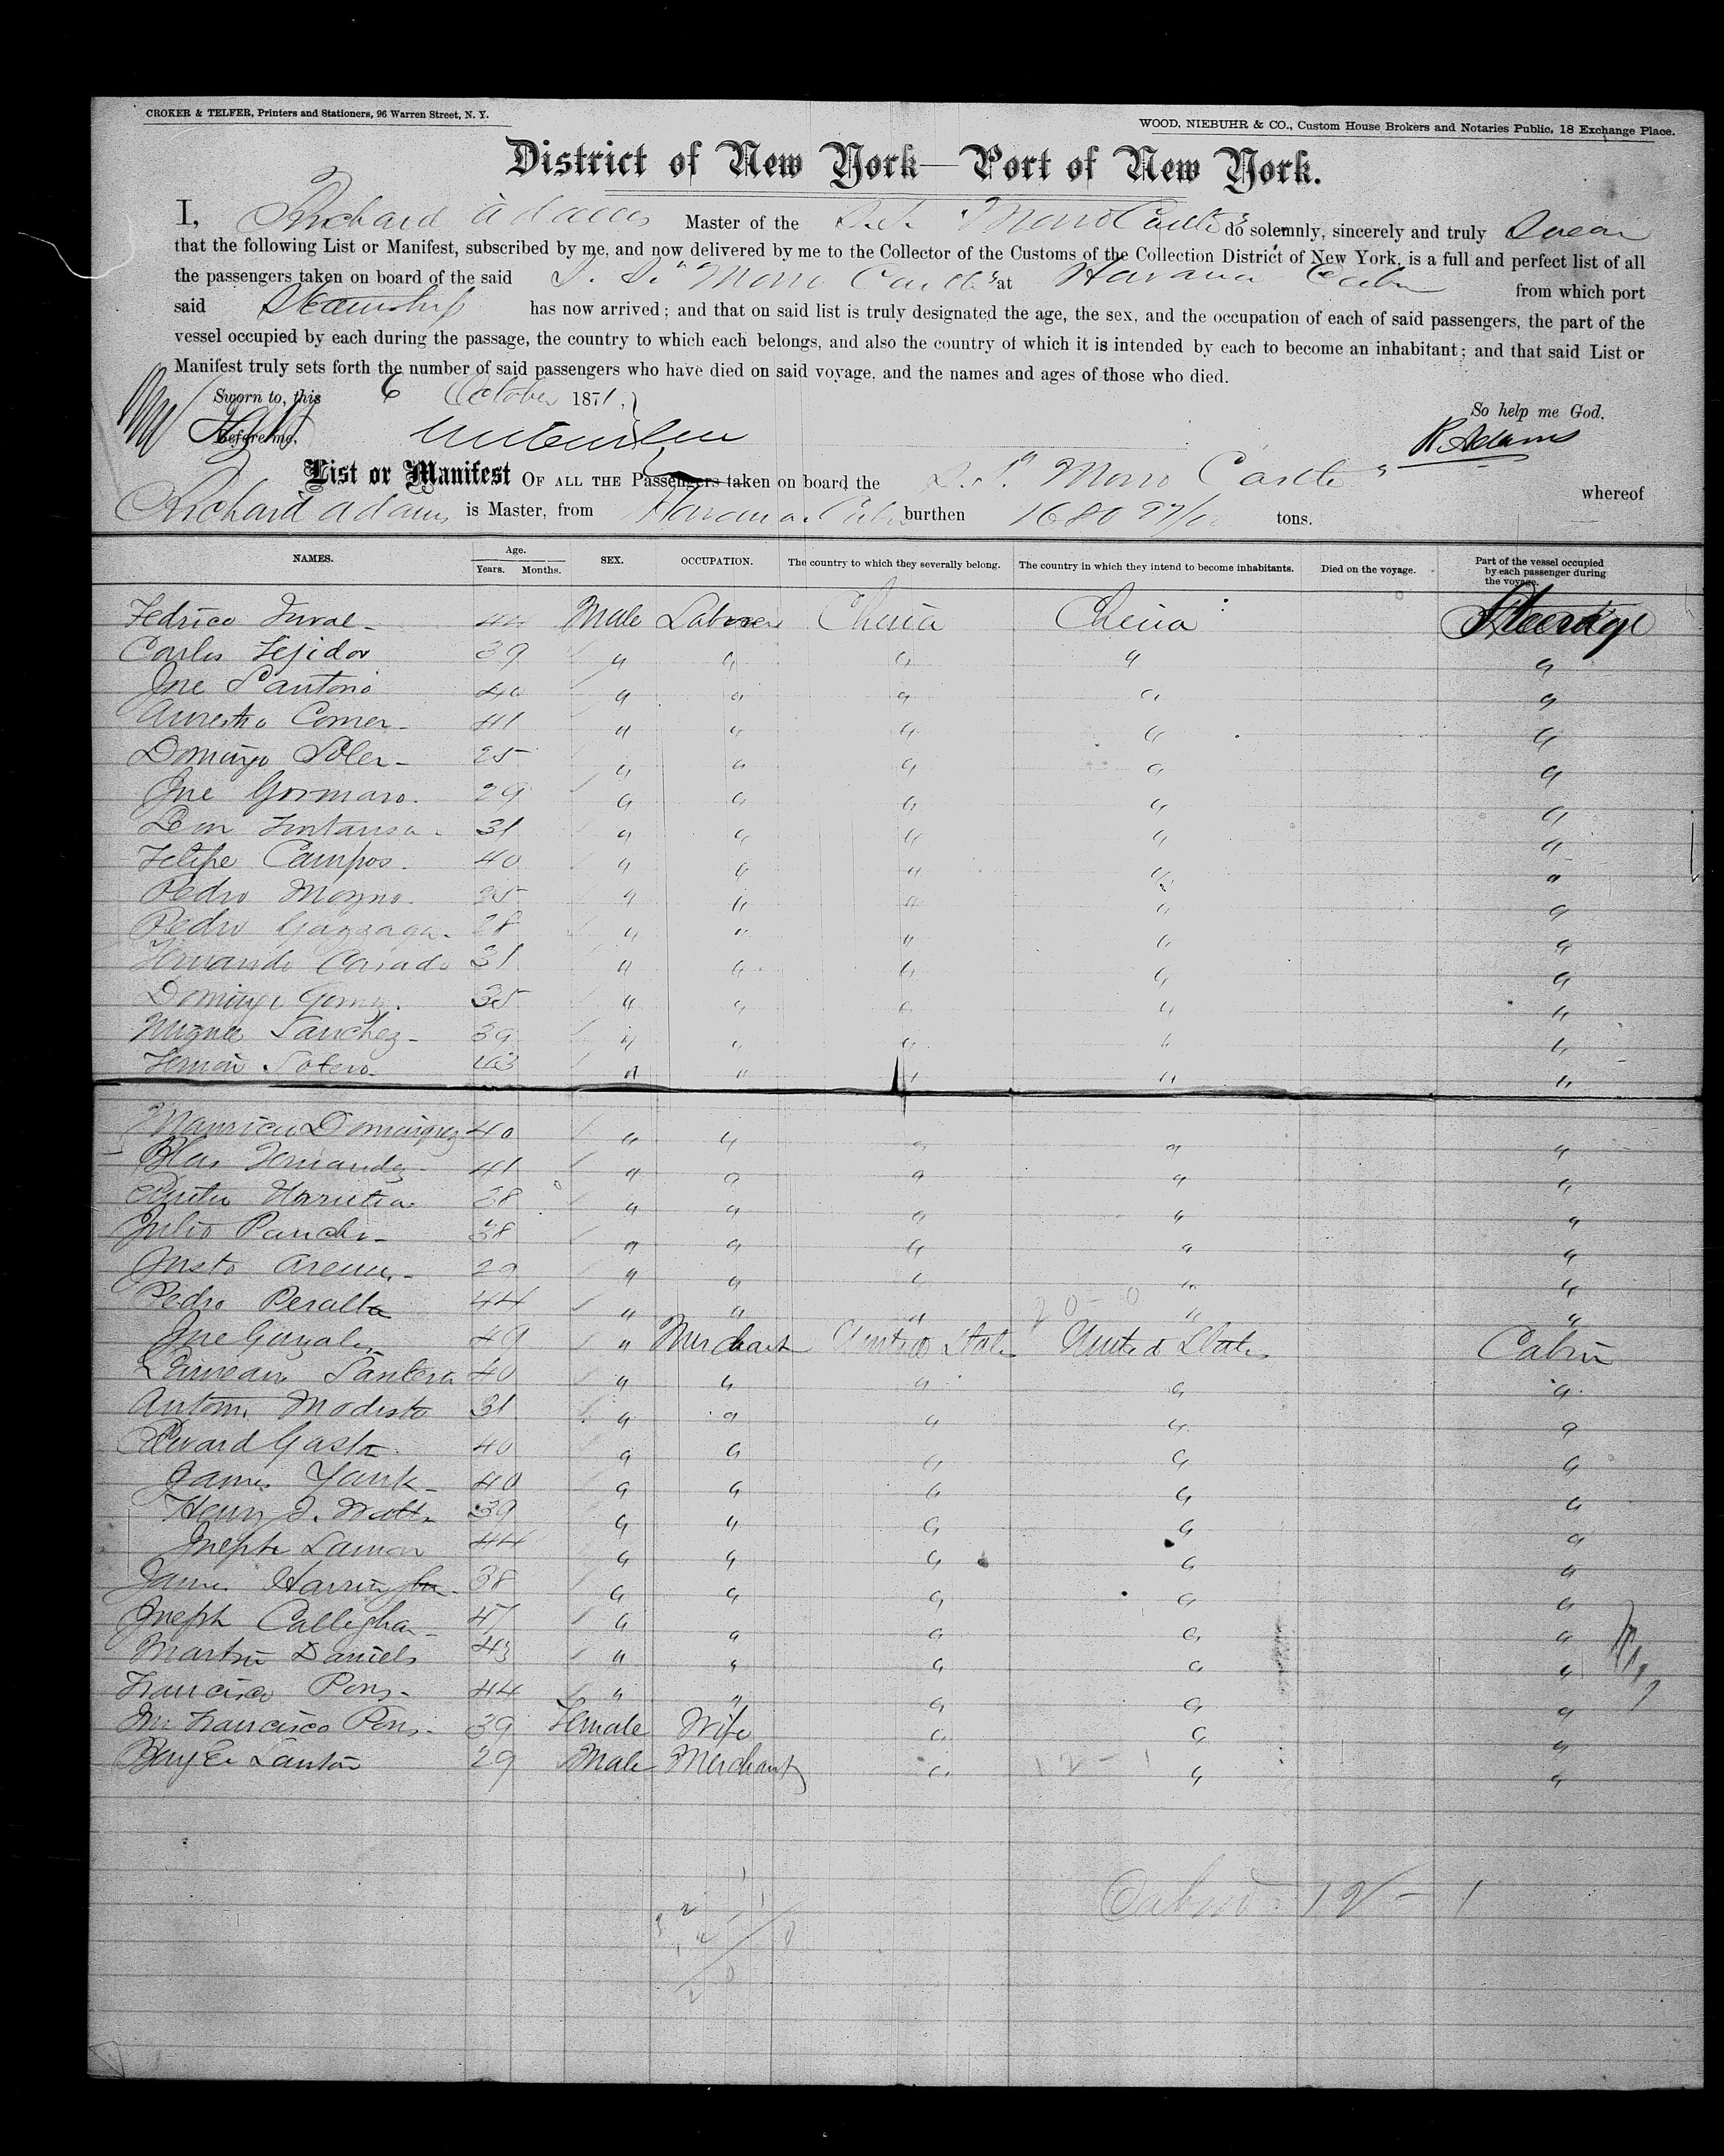 CROKER & TELFER, Printers and Stationers, 96 Warren Street, N. Y.
WOOD, NIEBUHR & CO., Custom House Brokers and Notaries Public, 18 Exchange Place.
District of New York—Port of New York.
I, Richard Adams Master of the S.S. "Morro Castle" do solemnly, sincerely and truly Swear
that the following List or Manifest, subscribed by me, and now delivered by me to the Collector of the Customs of the Collection District of New York, is a full and perfect list of all
the passengers taken on board of the said S. S. "Morro Castle" at Havana Cuba from which port
said Steamship has now arrived; and that on said list is truly designated the age, the sex, and the occupation of each of said passengers, the part of the
vessel occupied by each during the passage, the country to which each belongs, and also the country of which it is intended by each to become an inhabitant; and that said List or
Manifest truly sets forth the number of said passengers who have died on said voyage, and the names and ages of those who died.
Sworn to, this 6 October 1871.
So help me God.
Before me,
R. Adams
List or Manifest OF ALL THE Passengers taken on board the S. S. "Morro Castle" whereof
Richard Adams is Master, from Havana Cuba burthen 1680 tons.
NAMES. Age. Years. Months. SEX. OCCUPATION. The country to which they severally belong. The country in which they intend to become inhabitants. Died on the voyage. Part of the vessel occupied by each passenger during the voyage.
Fedrico 44 Male Laborer China China Steerage
Carlos Tejidor 39 " " " " "
Jose Santorio 40 " " " " "
Comer 41 " " " " "
Domingo Soler 25 " " " " "
Jose 29 " " " " "
Leon 31 " " " " "
Felipe Campos 40 " " " " "
Pedro 35 " " " " "
Pedro 28 " " " " "
Fernando Casado 31 " " " " "
Domingo Gomez 35 " " " " "
Miguel Sanchez 39 " " " " "
Sotero 43 " " " " "
Mauricio Dominguez 40 " " " " "
Blas Fernandez 41 " " " " "
38 " " " " "
Julio Pancho 38 " " " " "
Justo 29 " " " " "
Pedro Peralta 44 " " " " "
20 - 0
Jose Gonzales 49 " Merchant United States United States Cabin
Santera 40 " " " " "
Antonio Modesto 31 " " " " "
40 " " " " "
James York 40 " " " " "
Henry J. Watts 39 " " " " "
Joseph Lamon 44 " " " " "
James Harrington 38 " " " " "
Joseph Calleghan 47 " " " " "
Martin Daniels 43 " " " " "
Francisco Pons 44 " " " " "
Mrs Francisco Pons 39 Female Wife " " "
29 Male Merchant " " "
12 - 1
Cabin 12 - 1